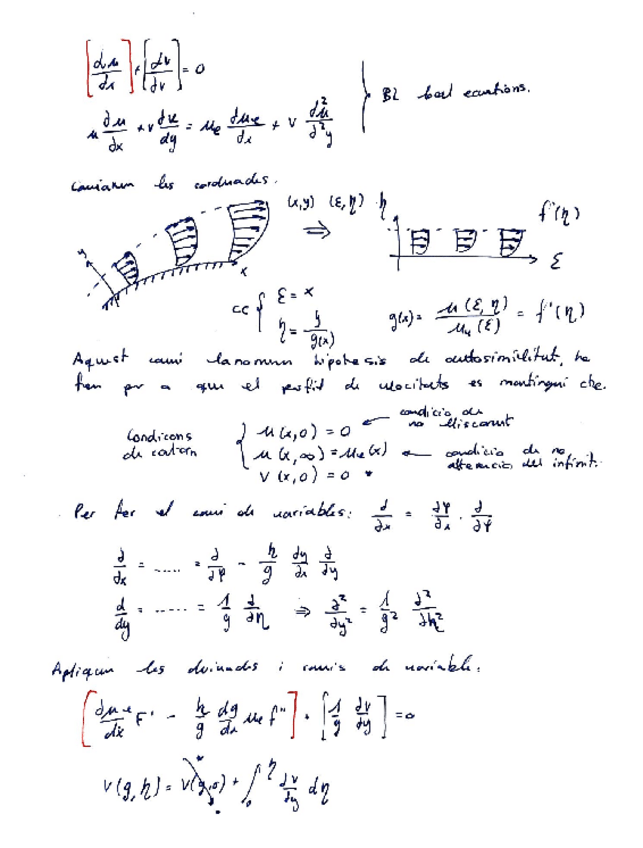 [du/dx] + [dv/dv] = 0
u du/dx + v du/dy = ue due/dx + ν d²u/d²y } BL
Canviarem les cordenades.
(x,y) (ε,η) η f'(η)
y x ⇒ ε
cc { ε = x
η = y/g(x)
g(x) = u(ε,η)/uu(ε) = f'(η)
Aquest canvi l'anomenem hipotesis de autosimilitut, he
fem per a que el perfil de velocitats es mantingui cte.
Condicions de contorn
{ u(x,0) = 0 ← condicio de no lliscament
u(x,∞) = ue(x) ← condicio de no alteracio del infinit.
v(x,0) = 0 *
· Per fer el canvi de variables: d/dx = ∂φ/∂x · ∂/∂φ
∂/∂x = ..... = ∂/∂φ - η/g dy/dx ∂/∂y
d/dy = ...... = 1/g ∂/∂η ⇒ ∂²/∂y² = 1/g² ∂²/∂η²
Apliquem les derivades i canvis de variable:
[due/dx F' - η/g dg/dx ue f''] + [1/g dv/dy] = 0
v(g,η) = v(g,0) + ∫₀^η dv/dy dη